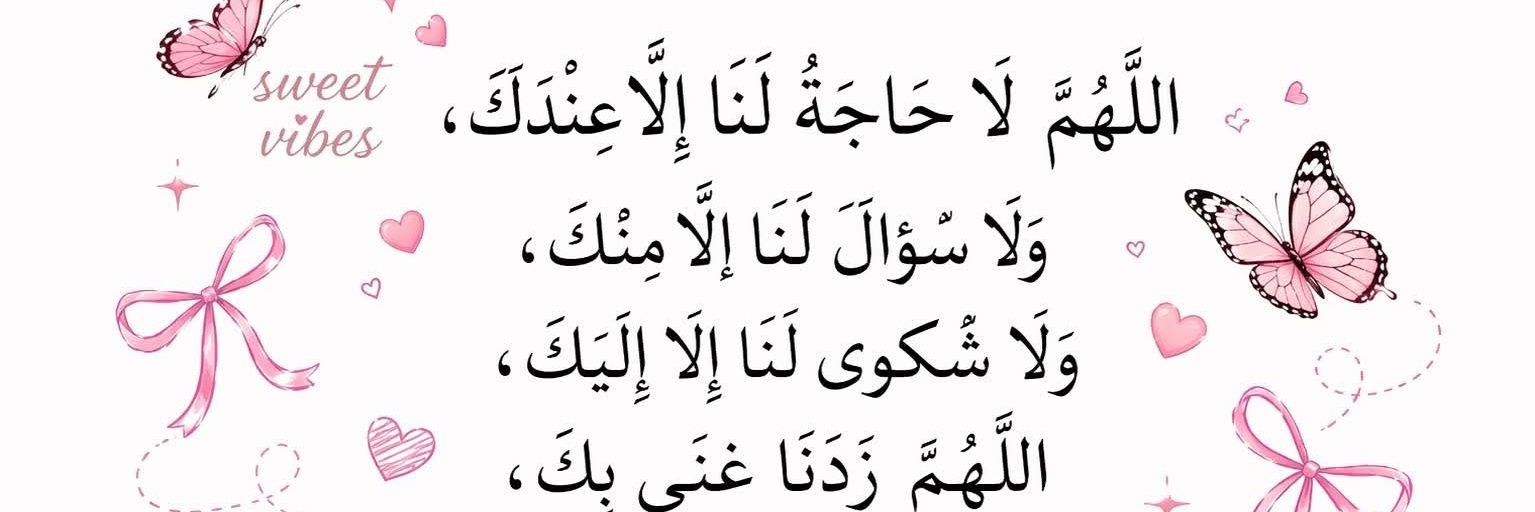 sweet
vibes
اللَّهُمَّ لَا حَاجَةُ لَنَا إِلَّاعِنْدَكَ،
وَلَا سْؤالَ لَنَا إلَّا مِنْكَ،
وَلَا شْكوى لَنَا إِلَا إِلَيَكَ،
اللَّهُمَّ زَدَنَا غنَى بِكَ،